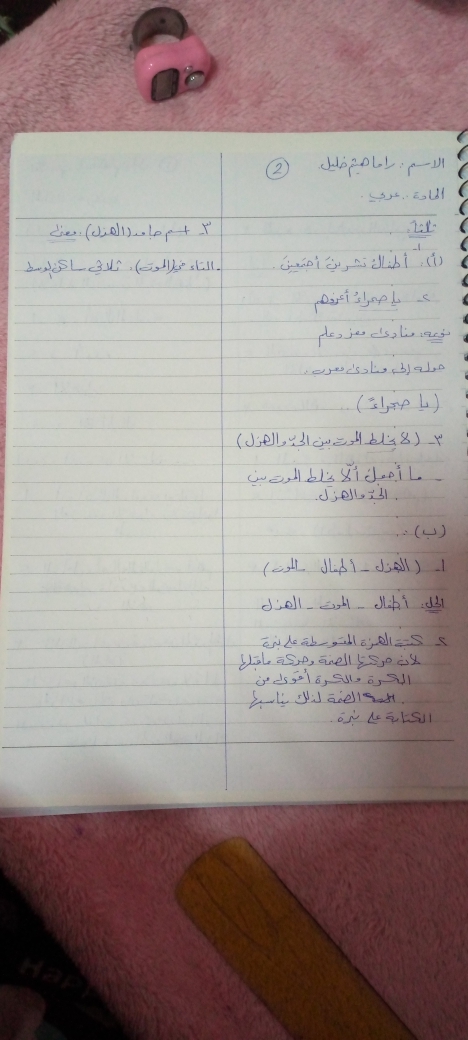 الاسم: راما هيثم خليل.
2
المادة: عربي.
ثالثاً:
(أ): 1- أطفالُ تشرينَ أجمعينَ.
2- يا صحراءُ أعرفهم
نوعه: منادى مفرد علم
حوله إلى منادى معرب:
(يا صحراءً)..
3- (لا يخلط الموت بين الجدّ والهزل)
- ما أجملَ ألّا يخلط الموت بين
الجدّ والهزل.
(ب):..
1- (الهزل - أطفال - الموت)
الحل: أطفال - الموت - الهزل
2- كتبت الهمزة المتوسطة على نبرة
لأن حركتها الضمة وحركة ماقبلها
الكسرة والكسرة أقوى من
الضمة لذلك يناسبها
الكتابة على نبرة.
3- اسم جامد (الهزل): معنى
- التاء في (الموت): ثلاثي ساكن الوسط
Happy